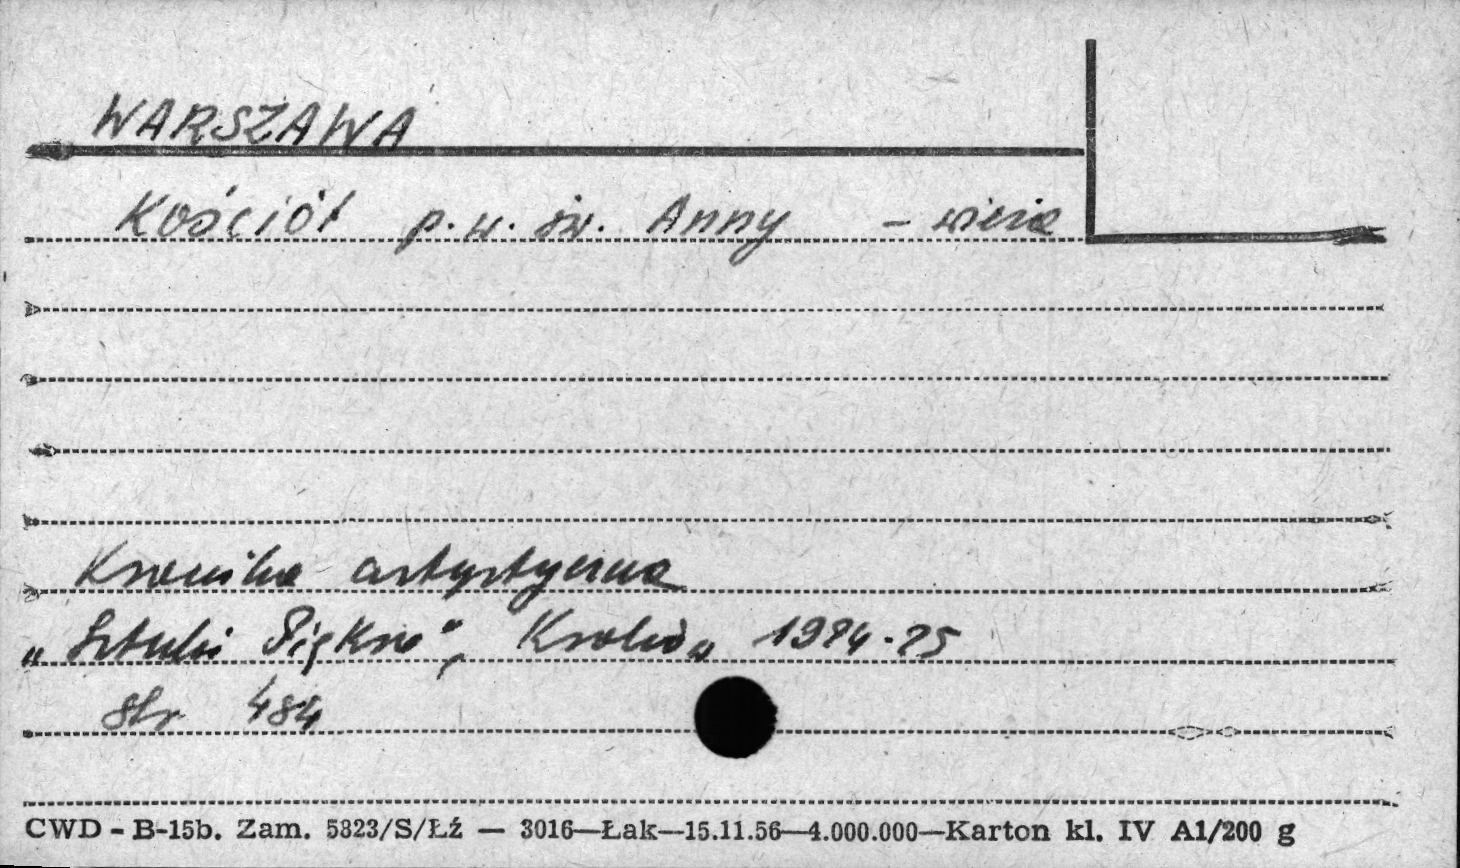 WARSZAWA
Kościół p.w. św. Anny – wieża
Kronika artystyczna
„Sztuki Piękne”, Kraków 1924-25
str 484
CWD - B-15b. Zam. 5823/S/Łź — 3016—Łak—15.11.56—4.000.000—Karton kl. IV A1/200 g